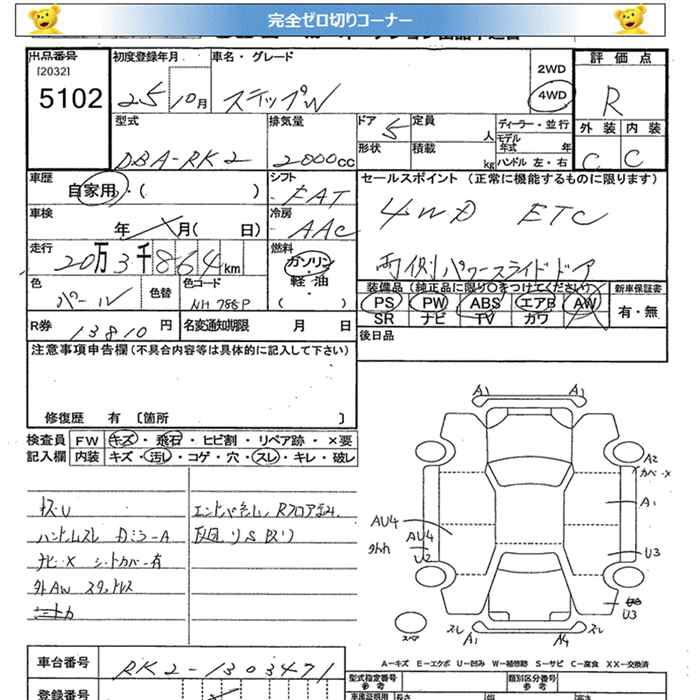 完全ゼロ切りコーナー
出品番号 初度登録年月 車名・グレード 評価点
[2032] 5102 25 10月 ステップW 2WD 4WD R
型式 排気量 ドア 定員 ディーラー・並行 外装 内装
DBA-RK2 2000cc 5 人 モデル年式 年 C C
形状 積載 kg ハンドル 左・右
車歴 シフト セールスポイント (正常に機能するものに限ります)
自家用・( ) FAT 4WD ETC
車検 冷房
年 月( 日) AAC
走行 燃料 両側パワースライドドア
20万3千864km ガソリン・軽油
色 色替 色コード 装備品 (純正品に限り○をつけてください) 新車保証書
パール NH788P PS PW ABS エアB AW 有・無
SR ナビ TV カワ
R券 13810円 名変通知期限 月 日 後日品
注意事項申告欄(不具合内容等は具体的に記入して下さい)
修復歴 有 [箇所 ]
検査員 FW キズ・飛石・ヒビ割・リペア跡・×要
記入欄 内装 キズ・汚レ・コゲ・穴・スレ・キレ・破レ
キズU エンドパネル、Rフロア
ハンドルスレ DミラーA
ナビ× シートカバー有
外AW スタッドレス
A1 A1
A2
カバー×
A1
AU4
AU4
U2 U3
U3
スペア スレ A1 A4 スレ
A-キズ E-エクボ U-凹み W-補修跡 S-サビ C-腐食 XX-交換済
車台番号 RK2-1303471 型式指定番号 参考 類別区分番号 参考
登録番号 車庫証明用 長さ 幅 高さ